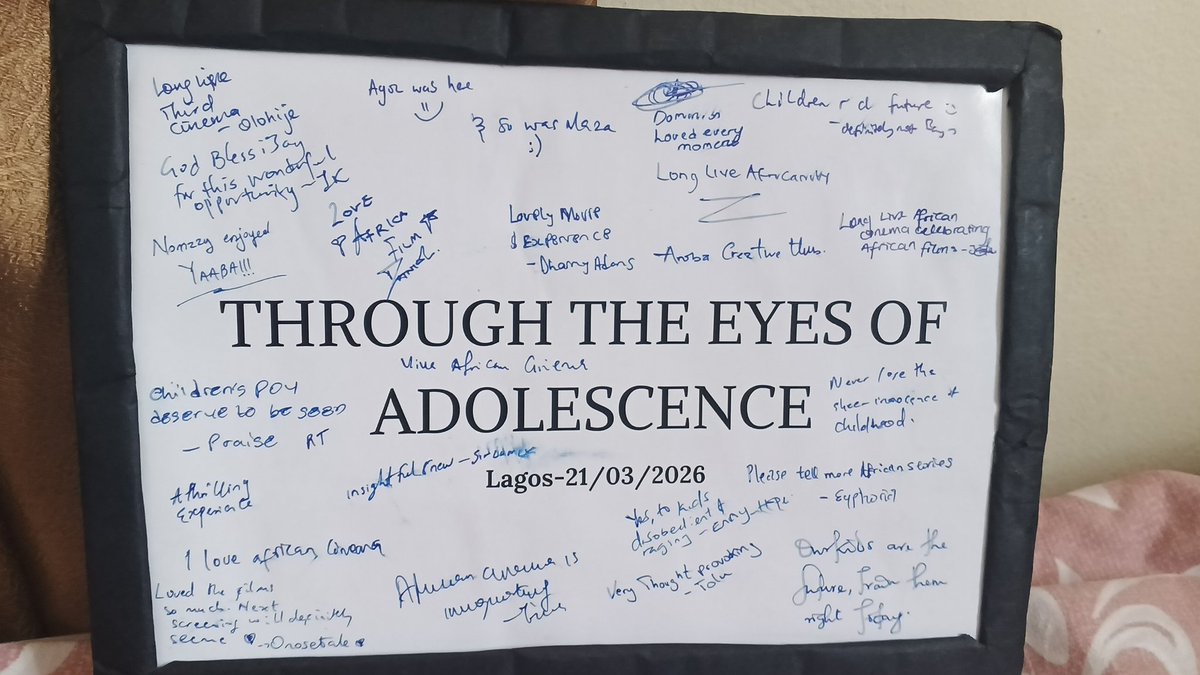 Long live
Third
cinema
- Olohije
God Bless iJay
for this wonderful
opportunity - IK
Nomzzy enjoyed
YAABA!!!
Love
of AFRICA
FILM
Ayoz was here
& so was Maza
;)
Lovely Movie
& Experience
- Dhamy Adans
Dominish
Loved every
moment
Long Live Africanity
- Aroba Creative Hub.
Children r d future
- definitely not Boys
Long Live African
cinema celebrating
African films -
THROUGH THE EYES OF
Vive African Cinema
ADOLESCENCE
Lagos-21/03/2026
Children's POV
deserve to be seen
- Praise RT
Never lose the
sheer innocence of
childhood.
insightful & new -
Please tell more African stories
- Eyphoriel
A thrilling
Experience
Yes, to kids
disobedient &
raging - Enny
I love african Cinema
African cinema is
Very Thought provoking
- Tolu
Our kids are the
future, train them
right today.
Loved the films
so much. Next
screening will definitely
see me - Onosetale